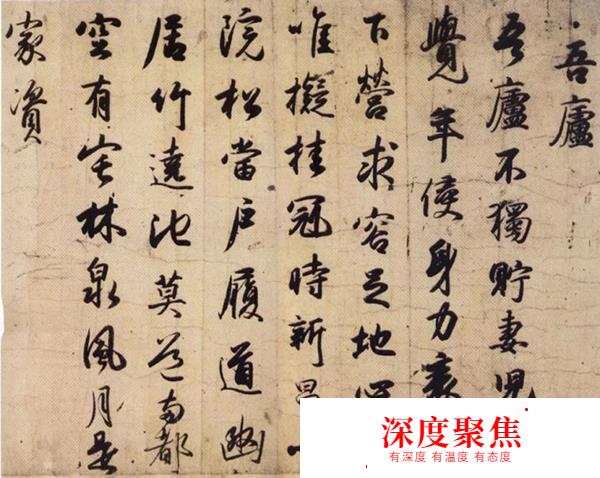 吾廬
吾廬不獨貯妻児
覺年侵身力衰
下營求容足地
唯擬挂冠時新昌
院松當戶履道幽
居竹遶池莫道兩都
空有宅林泉風月是
家資
深度聚焦
有深度 有温度 有态度